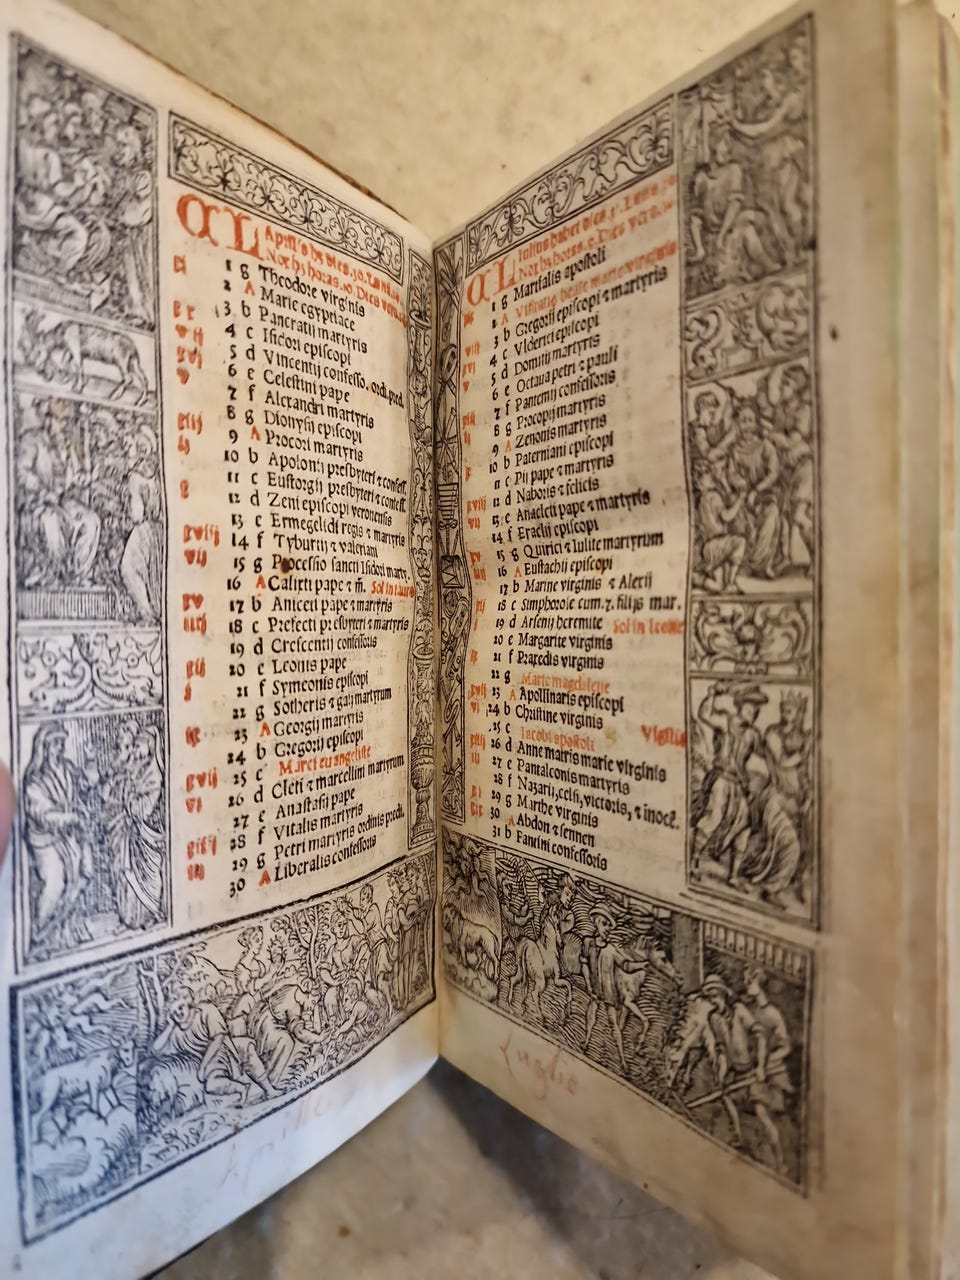 KL Aprilis hȝ dies .30. Luna
Nox hȝ horas .10. Dies vero
1 g Theodore virginis
2 A Marie egyptiace
3 b Pancratii martyris
4 c Isidori episcopi
5 d Vincentij confesso. ordi. pred.
6 e Celestini pape
7 f Alexandri martyris
8 g Dionysij episcopi
9 A Procori martyris
10 b Apolonij presbyteri ⁊ confess.
11 c Eustorgij presbyteri ⁊ confess.
12 d Zeni episcopi veronensis
13 e Ermegeldi regis ⁊ martyris
14 f Tyburtij ⁊ valeriani
15 g Processio sancti Isidori marty.
16 A Calixti pape ⁊ m̄. Sol in tauro
17 b Aniceti pape ⁊ martyris
18 c Prefecti presbyteri ⁊ martyris
19 d Crescentij confessoris
20 e Leonis pape
21 f Symeonis episcopi
22 g Sotheris ⁊ gaij martyrum
23 A Georgij martyris
24 b Gregorij episcopi
25 c Marci euangeliste
26 d Cleti ⁊ marcellini martyrum
27 e Anastasij pape
28 f Vitalis martyris
29 g Petri martyris ordinis predi.
30 A Liberalis confessoris
Aprille
KL Iulius habet dies
Nox hȝ horas .8. Dies vero
1 g Martialis apostoli
2 A Visitatio beate marie virginis
3 b Gregorij episcopi ⁊ martyris
4 c Vlderici episcopi
5 d Domitij martyris
6 e Octaua petri ⁊ pauli
7 f Pantemij confessoris
8 g Procopij martyris
9 A Zenonis martyris
10 b Paterniani episcopi
11 c Pij pape ⁊ martyris
12 d Naboris ⁊ felicis
13 e Anacleti pape ⁊ martyris
14 f Eraclij episcopi
15 g Quirici ⁊ Iulite martyrum
16 A Eustachij episcopi
17 b Marine virginis ⁊ Alexij
18 c Simphorose cum .7. filijs mar.
19 d Arsenij heremite Sol in leone
20 e Margarite virginis
21 f Praxedis virginis
22 g Marie magdalene
23 A Apollinaris episcopi
24 b Christine virginis Vigilia
25 c Iacobi apostoli
26 d Anne matris marie virginis
27 e Pantaleonis martyris
28 f Nazarij, celsi, victoris, ⁊ inocē.
29 g Marthe virginis
30 A Abdon ⁊ sennen
31 b Fantini confessoris
Luglio